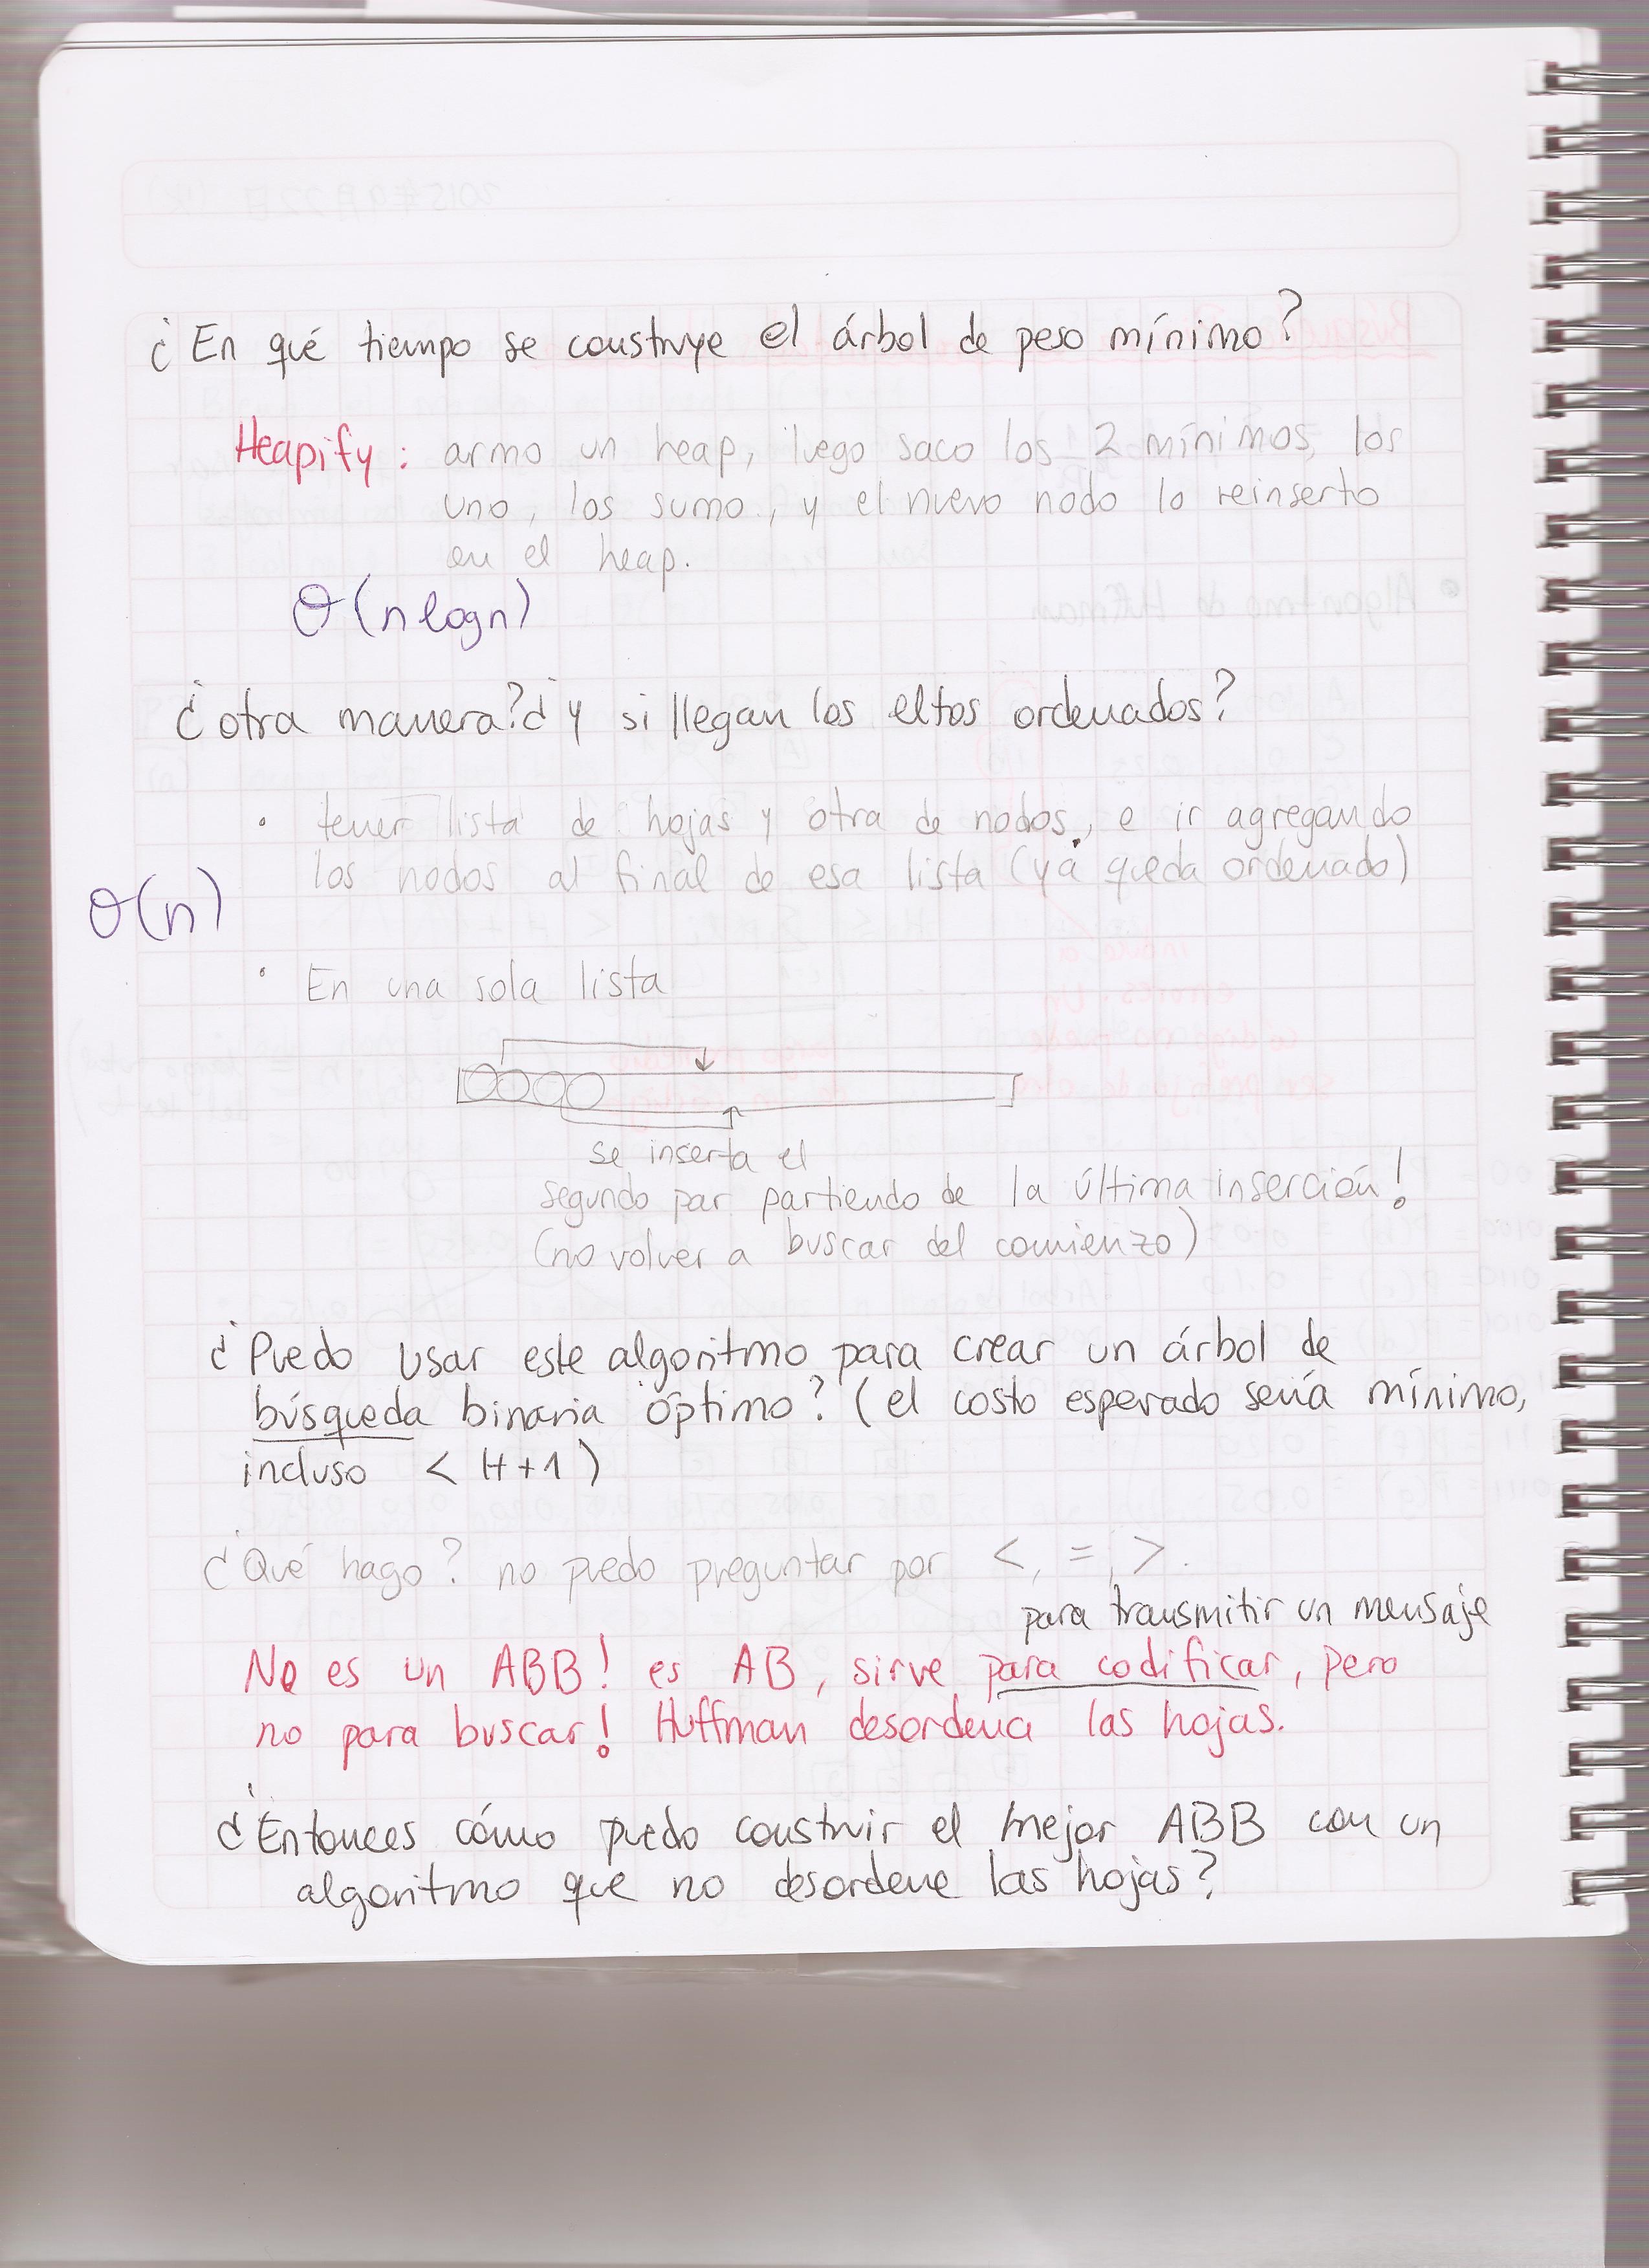 ¿En qué tiempo se construye el árbol de peso mínimo?
Heapify: armo un heap, luego saco los 2 mínimos, los
uno, los sumo, y el nuevo nodo lo reinserto
en el heap.
θ(n log n)
¿otra manera? ¿y si llegan los eltos ordenados?
• tener lista de hojas y otra de nodos, e ir agregando
los nodos al final de esa lista (ya queda ordenado)
θ(n)
• En una sola lista
se inserta el
segundo par partiendo de la última inserción!
(no volver a buscar del comienzo)
¿Puedo usar este algoritmo para crear un árbol de
búsqueda binaria óptimo? (el costo esperado sería mínimo,
incluso < H+1)
¿Qué hago? no puedo preguntar por <, =, >.
para transmitir un mensaje
No es un ABB! es AB, sirve para codificar, pero
no para buscar! Huffman desordena las hojas.
¿Entonces cómo puedo construir el mejor ABB con un
algoritmo que no desordene las hojas?